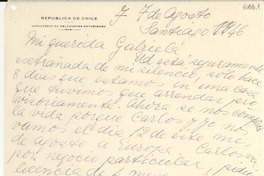 REPUBLICA DE CHILE
MINISTERIO DE RELACIONES EXTERIORES
7 de Agosto
Santiago 1946
Mi querida Gabriela
Ud está seguramente
extrañada de mi silencio, solo hace
8 dias que estamos en una casa
tuvimos que arrendar pro-
visoriamente. Ahora se nos
la vida porque Carlos y yo nos
vamos el dia 12 de este mes
de agosto a Europa. Carlos va
por negocio particular, pidió
licencia de 6